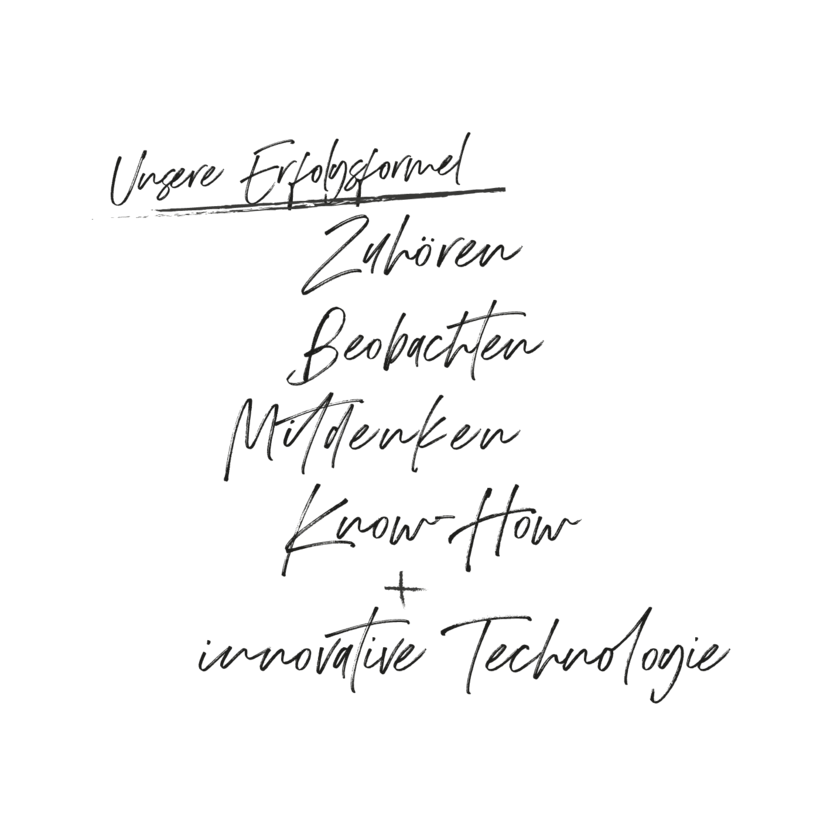 Unsere Erfolgsformel
Zuhören
Beobachten
Mitdenken
Know-How
+
innovative Technologie